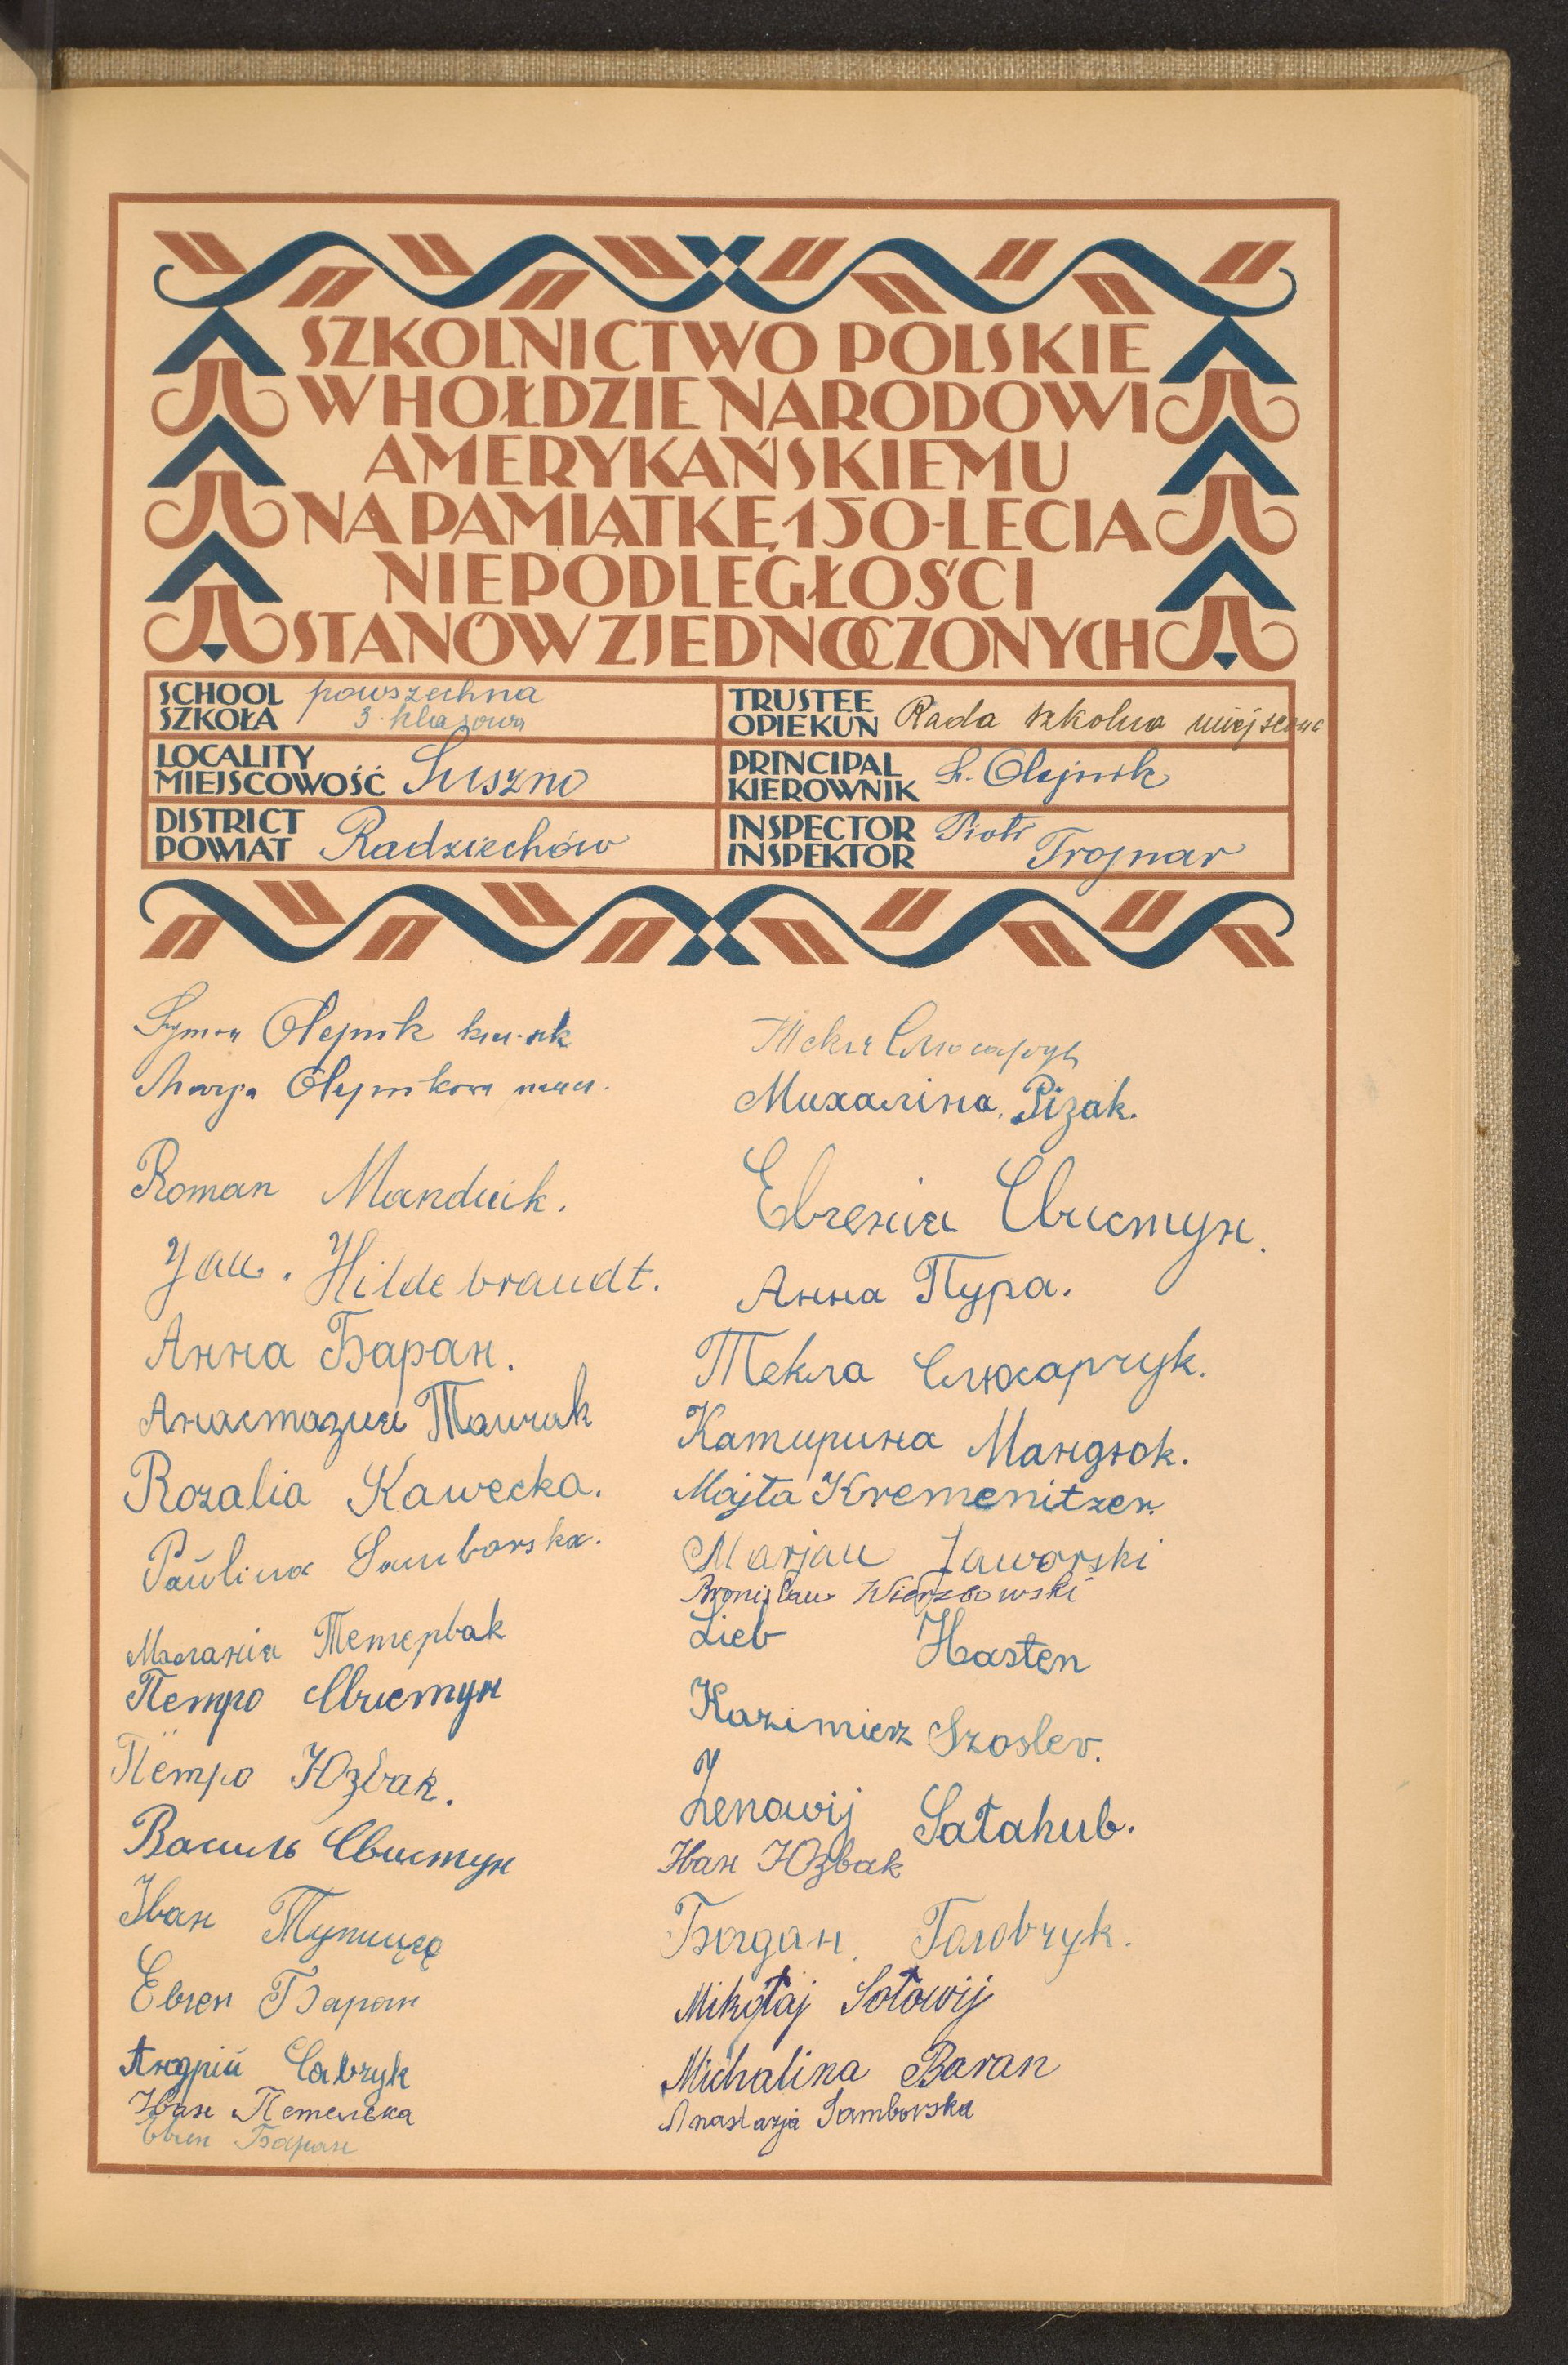 SZKOLNICTWO POLSKIE
W HOŁDZIE NARODOWI
AMERYKAŃSKIEMU
NA PAMIĄTKĘ 150-LECIA
NIEPODLEGŁOŚCI
STANÓW ZJEDNOCZONYCH
SCHOOL
SZKOŁA
powszechna
3. klasowa
TRUSTEE
OPIEKUN
Rada szkolna miejscowa
LOCALITY
MIEJSCOWOŚĆ
Suszno
PRINCIPAL
KIEROWNIK
S. Olejnik
DISTRICT
POWIAT
Radziechów
INSPECTOR
INSPEKTOR
Piotr
Trojnar
Szymon Olejnik
Marja Olejnikowa naucz.
Roman Manduik.
Jan. Hildebrandt.
Анна Баран.
Анастазия
Rozalia Kawecka.
Paulina Samborska.
Маланія Тетервак
Петро Свистун
Петро Юзвак.
Василь Свистун
Іван
Евген Баран
Андрій Савчук
Іван Петелька
Евген Баран
Текля Слюсарчук
Михаліна. Різак.
Евгенія Свистун.
Анна Пура.
Текла Слюсарчук.
Катирина Мандюк.
Majta Kremenitzer.
Marjan Jaworski
Bronisław Wierzbowski
Lieb Hasten
Kazimierz Szosler.
Zenowij Sałahub.
Іван Юзвак
Богдан. Головчук.
Mikołaj Sołowij
Michalina Baran
Anastazja Samborska